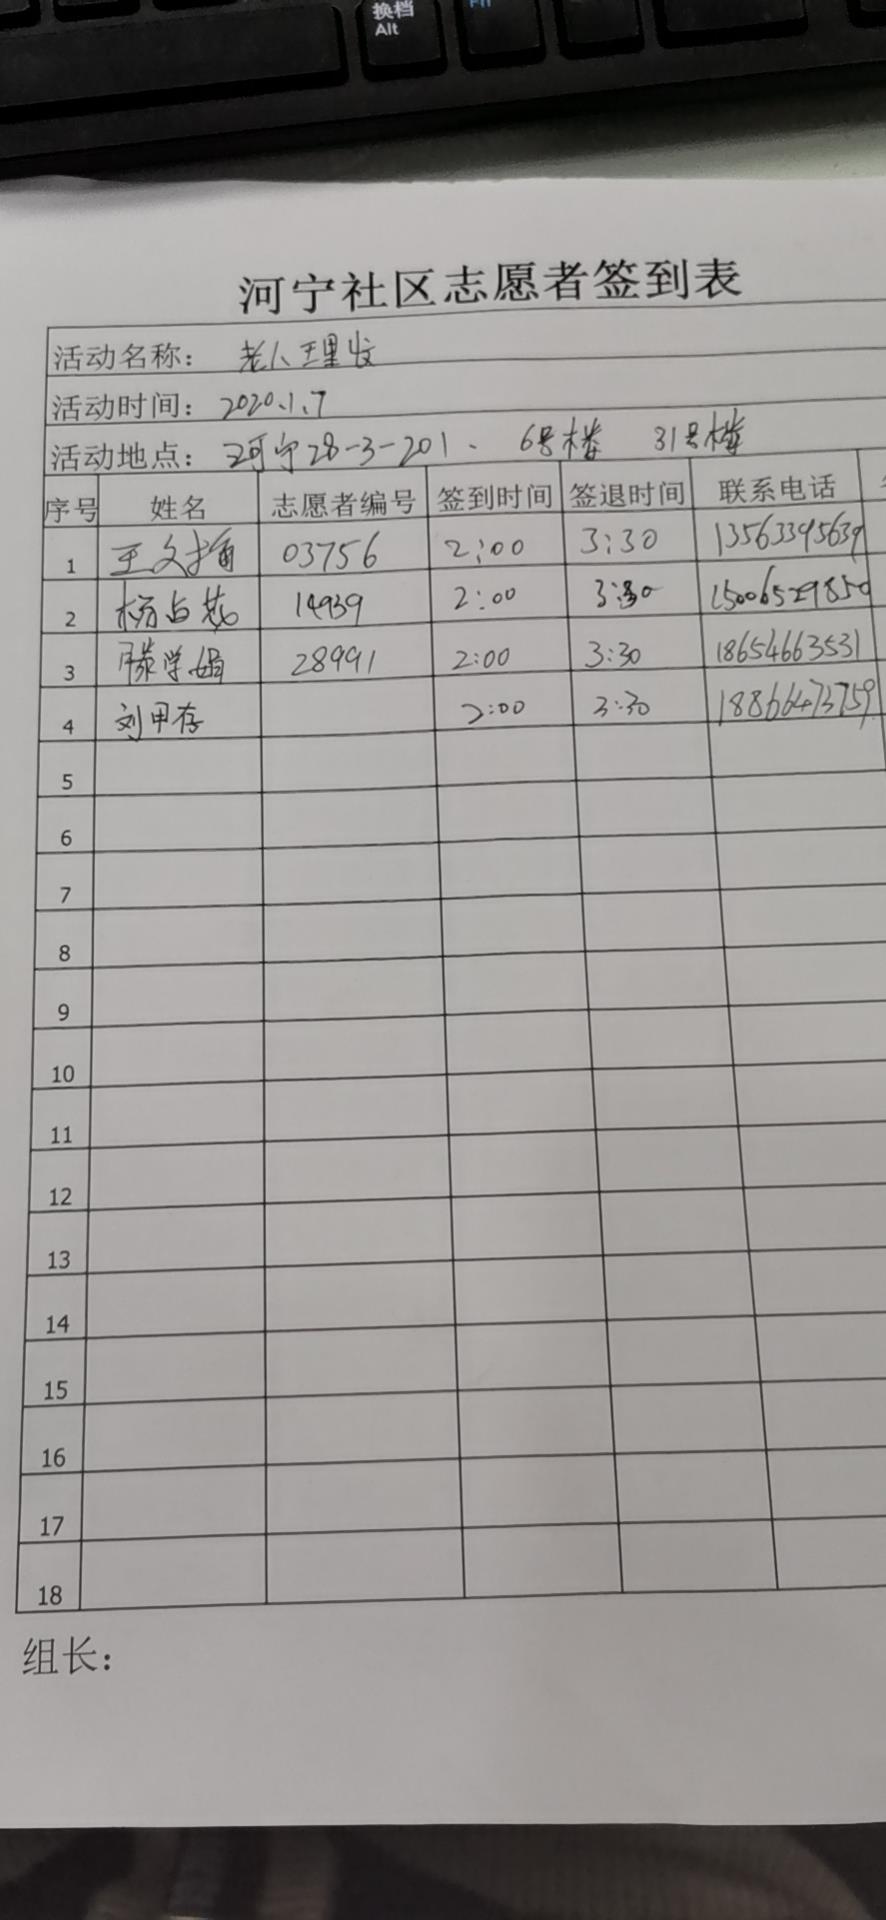 换档
Alt
Fn
河宁社区志愿者签到表
活动名称: 老人理发
活动时间: 2020.1.7
活动地点: 河宁28-3-201、 6号楼 31号楼
序号 姓名 志愿者编号 签到时间 签退时间 联系电话
1 王文 03756 2:00 3:30 13563395639
2 杨占花 14939 2:00 3:30 15006529850
3 滕学娟 28991 2:00 3:30 18654663531
4 刘甲存 2:00 3:30 18866473759
5
6
7
8
9
10
11
12
13
14
15
16
17
18
组长: